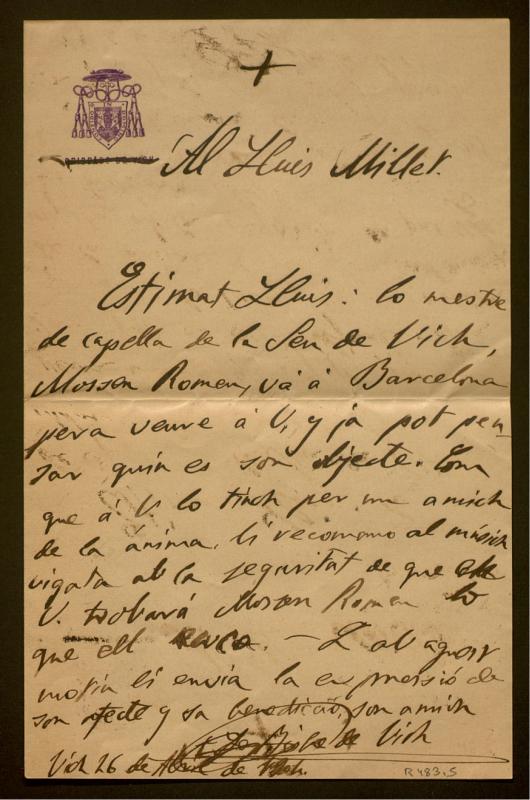 +
BISBAT DE VICH
Al Lluis Millet.
Estimat Lluis: lo mestre
de capella de la Seu de Vich,
Mossen Romeu, vá á Barcelona
pera veure á V. y ja pot pen-
sar quin es son objecte. Com
que á V. lo tinch per un amich
de la ánima, li recomano al músich
vigatá ab la seguritat de que
V. trobará Mossen Romeu lo
que ell busca. — Y ab aquest
motiu li envia la expressió de
son afecte y sa benedicció, son amich
Bisbe de Vich
Vich 26 de Abril de
R 483.5